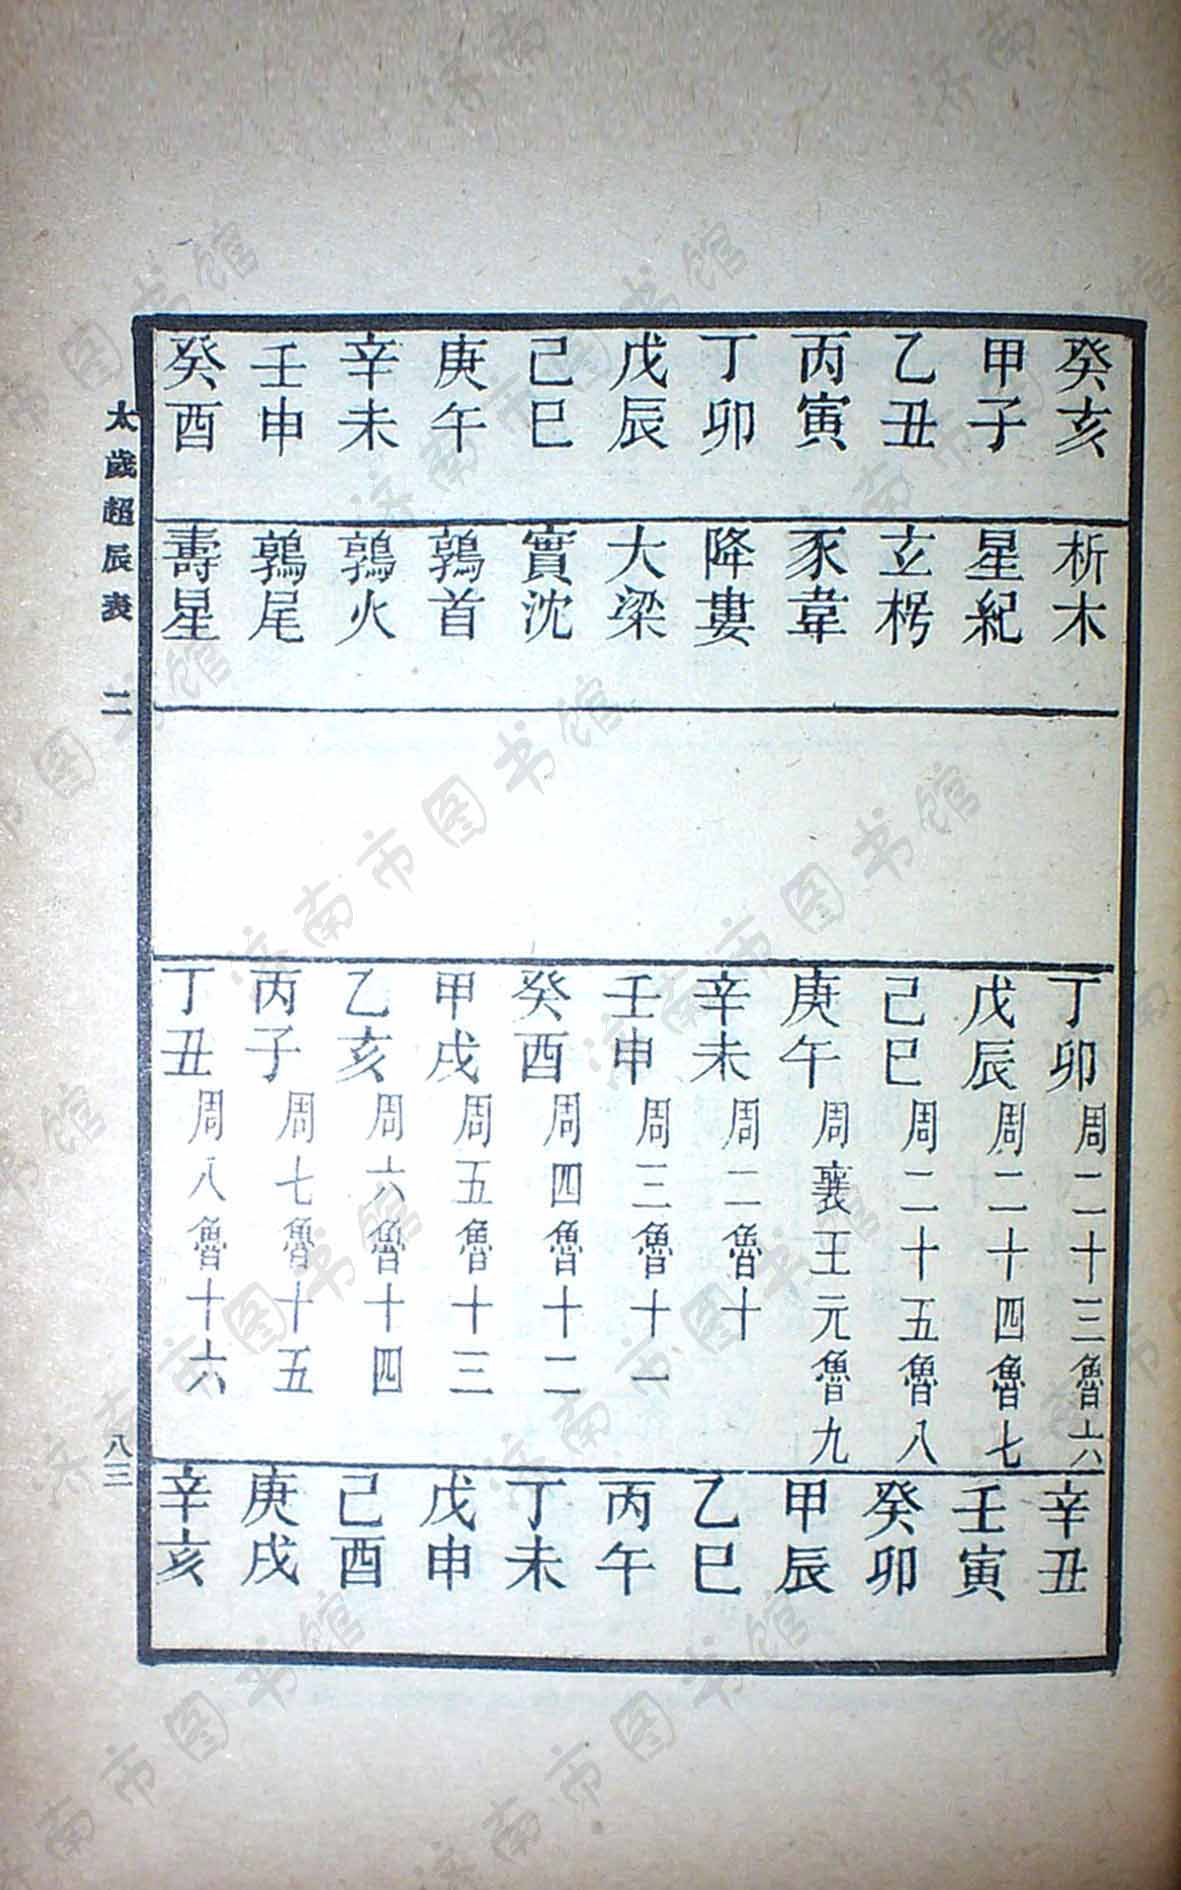 癸亥 析木 丁卯 周二十三魯六 辛丑
甲子 星紀 戊辰 周二十四魯七 壬寅
乙丑 玄枵 己巳 周二十五魯八 癸卯
丙寅 豕韋 庚午 周襄王元魯九 甲辰
丁卯 降婁 辛未 周二魯十 乙巳
戊辰 大梁 壬申 周三魯十一 丙午
己巳 實沈 癸酉 周四魯十二 丁未
庚午 鶉首 甲戌 周五魯十三 戊申
辛未 鶉火 乙亥 周六魯十四 己酉
壬申 鶉尾 丙子 周七魯十五 庚戌
癸酉 壽星 丁丑 周八魯十六 辛亥
太歲超辰表 二 八三
济南市图书馆